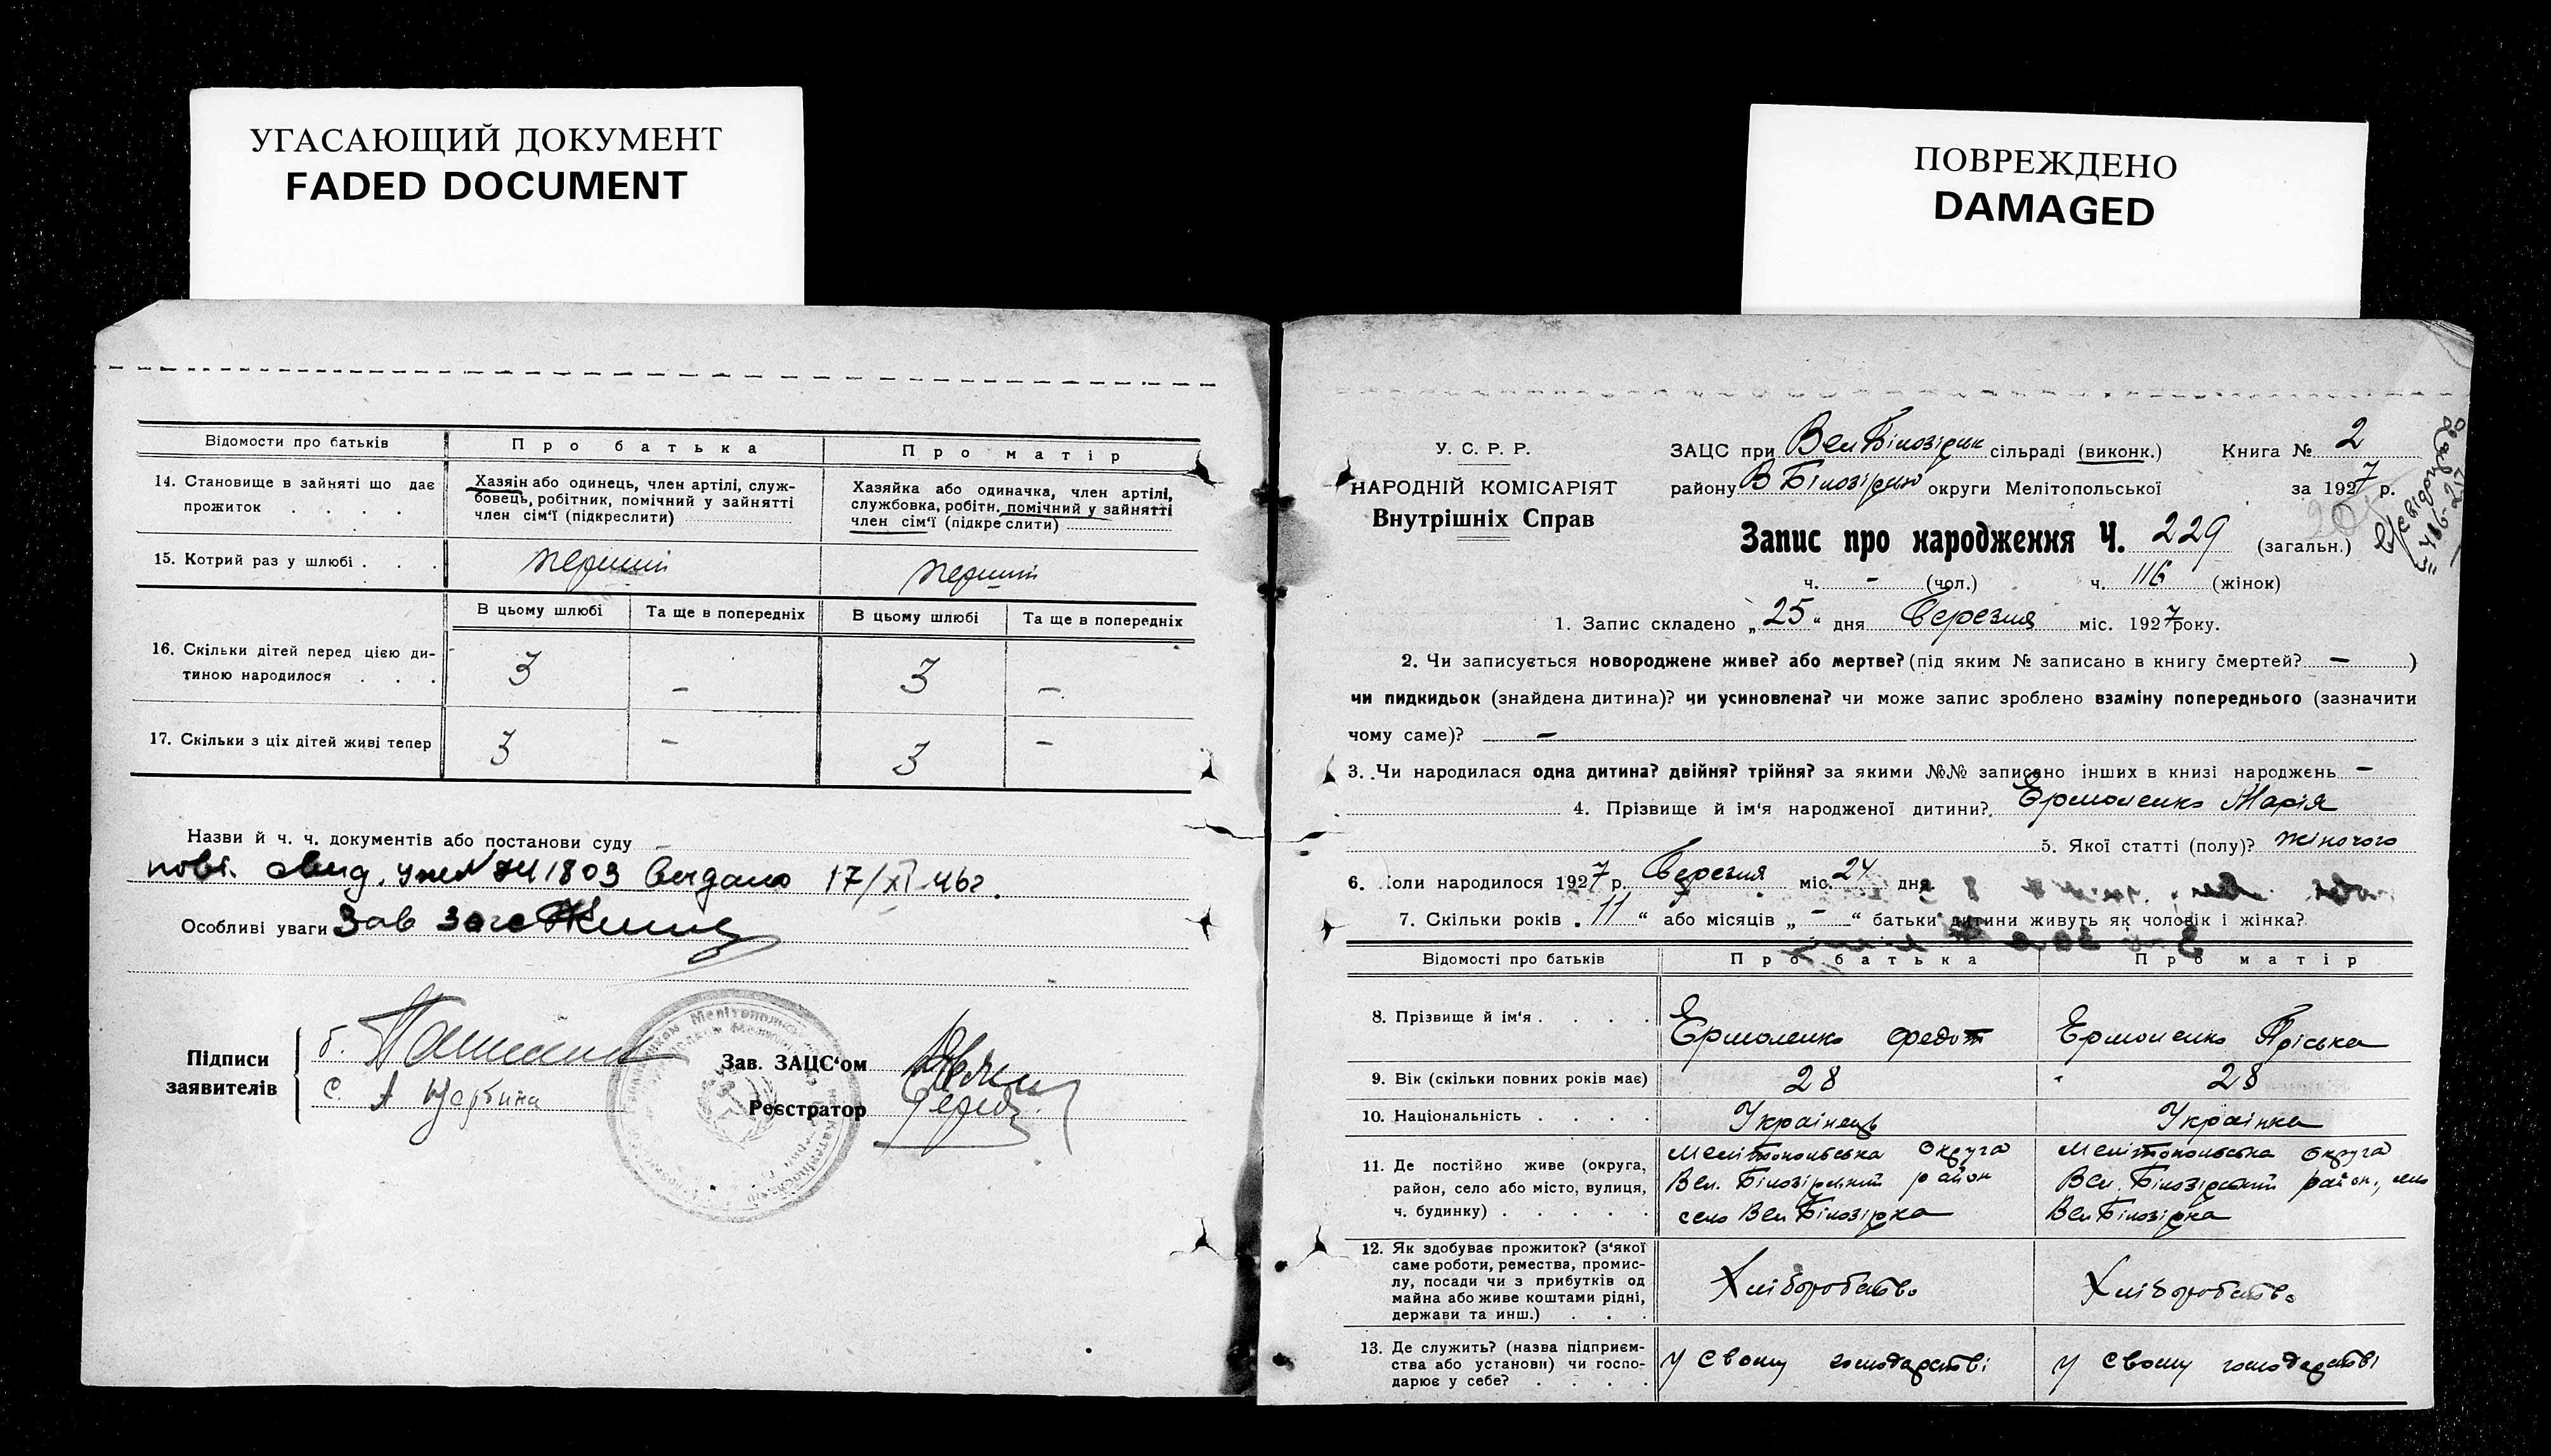 УГАСАЮЩИЙ ДОКУМЕНТ
FADED DOCUMENT
ПОВРЕЖДЕНО
DAMAGED
Відомости про батьків
Про батька
Про матір
14. Становище в зайняті що дає
прожиток . . . .
Хазяін або одинець, член артілі, служ-
бовець, робітник, помічний у зайнятті
член сім'ї (підкреслити)
Хазяйка або одиначка, член артілі,
службовка, робітн. помічний у зайнятті
член сім'ї (підкреслити)
15. Котрий раз у шлюбі . . .
перший
перший
В цьому шлюбі
Та ще в попередніх
В цьому шлюбі
Та ще в попередніх
16. Скільки дітей перед цією ди-
тиною народилося . . .
3 - 3 -
17. Скільки з ціх дітей живі тепер
3 - 3 -
Назви й ч. ч. документів або постанови суду
повт. свид. УЖ № 1803 Видано 17/XI-46г.
Особливі уваги Зав загс
Підписи
заявителів
б.
с. А Щербина
Зав. ЗАЦС'ом
Реєстратор
У. С. Р. Р.
НАРОДНІЙ КОМІСАРІЯТ
Внутрішніх Справ
ЗАЦС при Вел Білозірск сільраді (виконк.) Книга № 2
району В Білозірск округи Мелітопольської за 1927 р.
Запис про народження Ч. 229 (загальн.)
ч. - (чол.) ч. 116 (жінок)
1. Запис складено „25" дня Березня міс. 1927 року.
2. Чи записується новороджене живе? або мертве? (під яким № записано в книгу смертей? - )
чи пидкидьок (знайдена дитина)? чи усиновлена? чи може запис зроблено взаміну попереднього (зазначити
чому саме)? -
3. Чи народилася одна дитина? двійня? трійня? за якими №№ записано інших в книзі народжень -
4. Прізвище й ім'я народженої дитини? Єрмоленко Марія
5. Якої статті (полу)? жіночого
6. Коли народилося 1927 р. Березня міс. 24 дня.
7. Скільки років „11" або місяців „-" батьки дитини живуть як чоловік і жінка?
Відомості про батьків
Про батька
Про матір
8. Прізвище й ім'я . . . .
Єрмоленко Федот
Єрмоленко Пріська
9. Вік (скільки повних років має)
28
28
10. Національність . . . .
Українець
Українка
11. Де постійно живе (округа,
район, село або місто, вулиця,
ч. будинку) . . . . .
Мелітопольська округа
Вел. Білозірський район
село Вел Білозірка
Мелітопольська округа
Вел. Білозірський район, село
Вел Білозірка
12. Як здобуває прожиток? (з'якої
саме роботи, ремества, промис-
лу, посади чи з прибутків од
майна або живе коштами рідні,
держави та инш.) . . .
Хліборобство
Хліборобство
13. Де служить? (назва підприєм-
ства або установи) чи госпо-
дарює у себе? . . . .
У своему господарстві
У своему господарстві